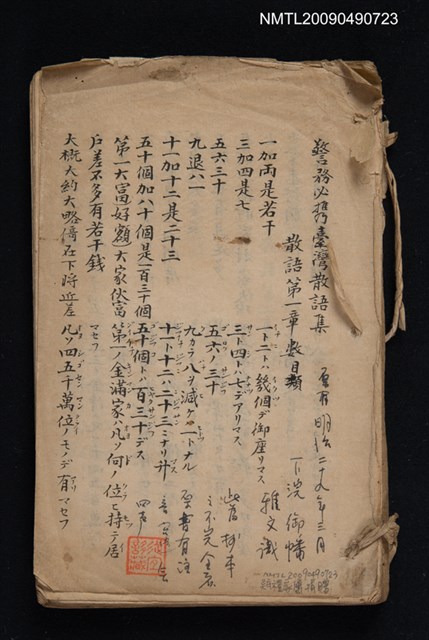 NMTL20090490723
警務必携臺灣散語集
明治二十九年三月
散語第一章 數目類
下洸 御幡
雅文識
一加両是若干
一ト二トハ幾個デ御座リマス
三加四是七
三ト四トハ七デアリマス
此旧抄本
五六三十
五六ノ三十
之不完全者
九退八一
九カラ八ヲ減ケバ一トナル
原書有注
十一加十二是二十三
十一ト十二ハ二十三ニナリマス
五十個加八十個是一百三十個
五十個トハ百三十デス
第一大富(好額)大家伙富
第一ノ金滿家ハ凡ソ何ノ位ヒ持テ居
戶差不多有若干錢
マセフ
大概大約大略僑在下將近差
凡ソ四五千萬位ノモノデ有マセフ
NMTL20090490723